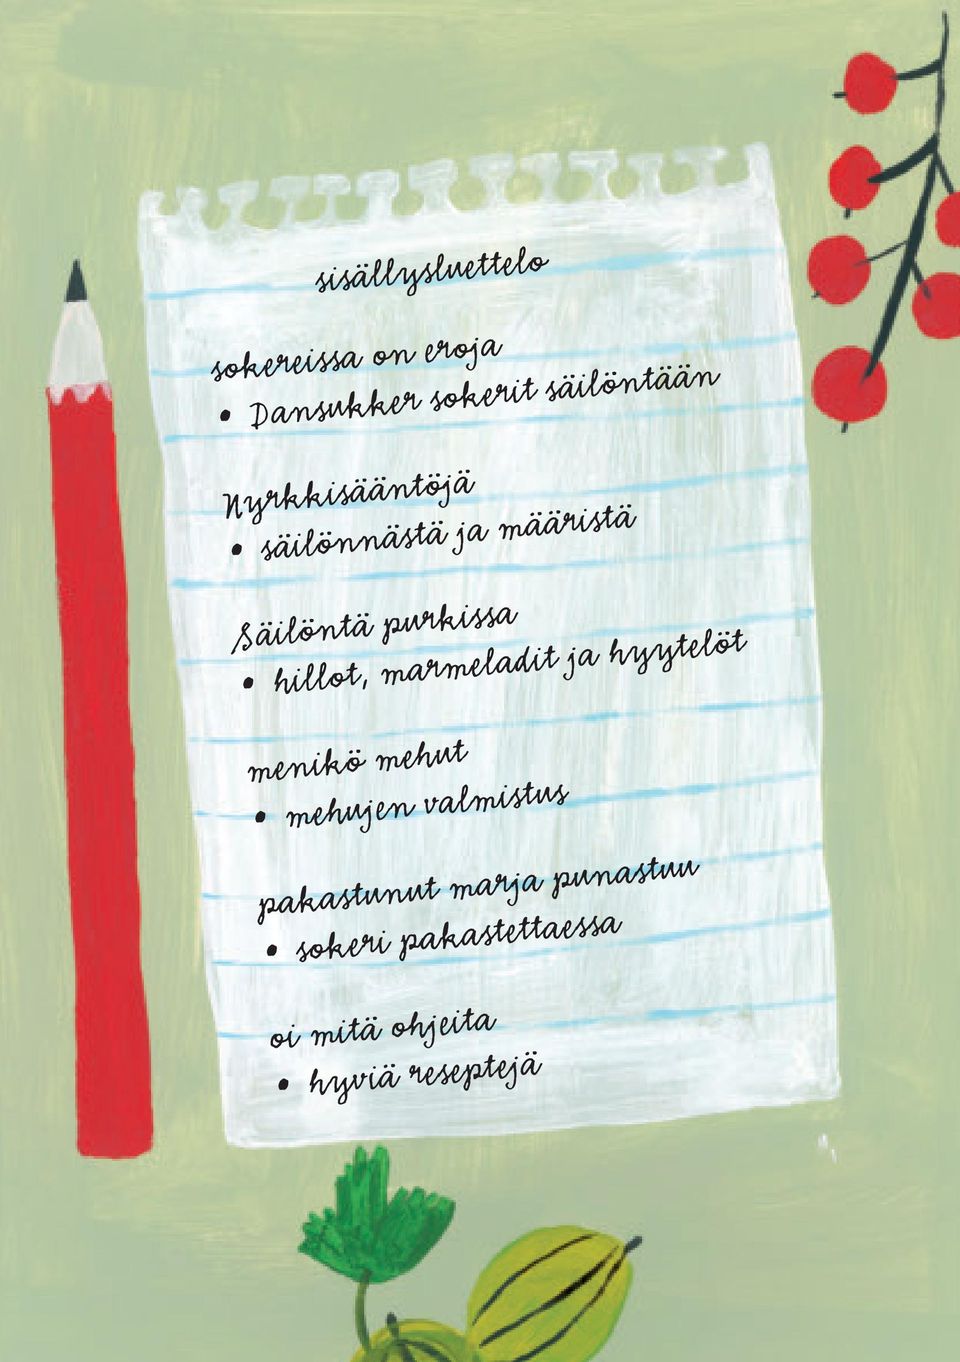 sisällysluettelo
sokereissa on eroja
• Dansukker sokerit säilöntään
Nyrkkisääntöjä
• säilönnästä ja määristä
Säilöntä purkissa
• hillot, marmeladit ja hyytelöt
menikö mehut
• mehujen valmistus
pakastunut marja punastuu
• sokeri pakastettaessa
oi mitä ohjeita
• hyviä reseptejä